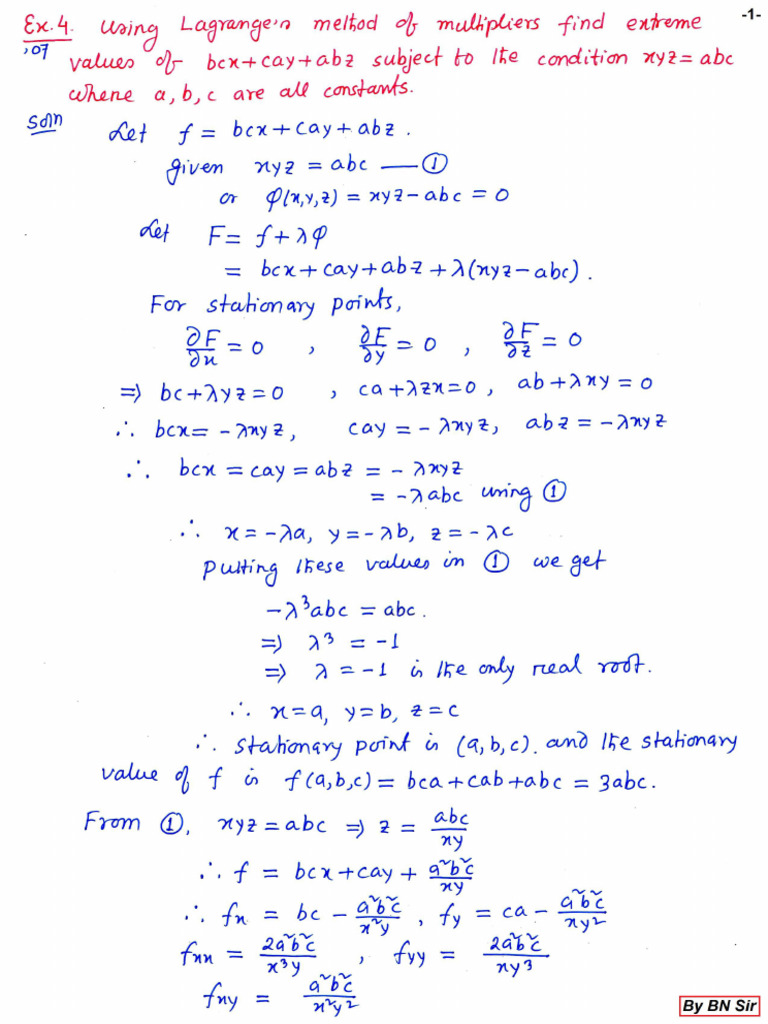 -1-
Ex.4. Using Lagrange's method of multipliers find extreme
'07 values of bcx+cay+abz subject to the condition xyz=abc
where a,b,c are all constants.
Soln Let f = bcx+cay+abz.
given xyz = abc —— ①
or φ(x,y,z) = xyz-abc = 0
Let F = f+λφ
= bcx+cay+abz+λ(xyz-abc).
For stationary points,
∂F/∂x = 0 , ∂F/∂y = 0 , ∂F/∂z = 0
⇒ bc+λyz=0 , ca+λzx=0, ab+λxy=0
∴ bcx = -λxyz, cay = -λxyz, abz = -λxyz
∴ bcx = cay = abz = -λxyz
= -λabc using ①
∴ x=-λa, y=-λb, z=-λc
Putting these values in ① we get
-λ³abc = abc.
⇒ λ³ = -1
⇒ λ = -1 is the only real root.
∴ x=a, y=b, z=c
∴ stationary point is (a,b,c). and the stationary
value of f is f(a,b,c) = bca+cab+abc = 3abc.
From ①, xyz=abc ⇒ z = abc/xy
∴ f = bcx+cay+ a²b²c²/xy
∴ fx = bc - a²b²c²/x²y , fy = ca - a²b²c²/xy²
fxx = 2a²b²c²/x³y , fyy = 2a²b²c²/xy³
fxy = a²b²c²/x²y²
By BN Sir